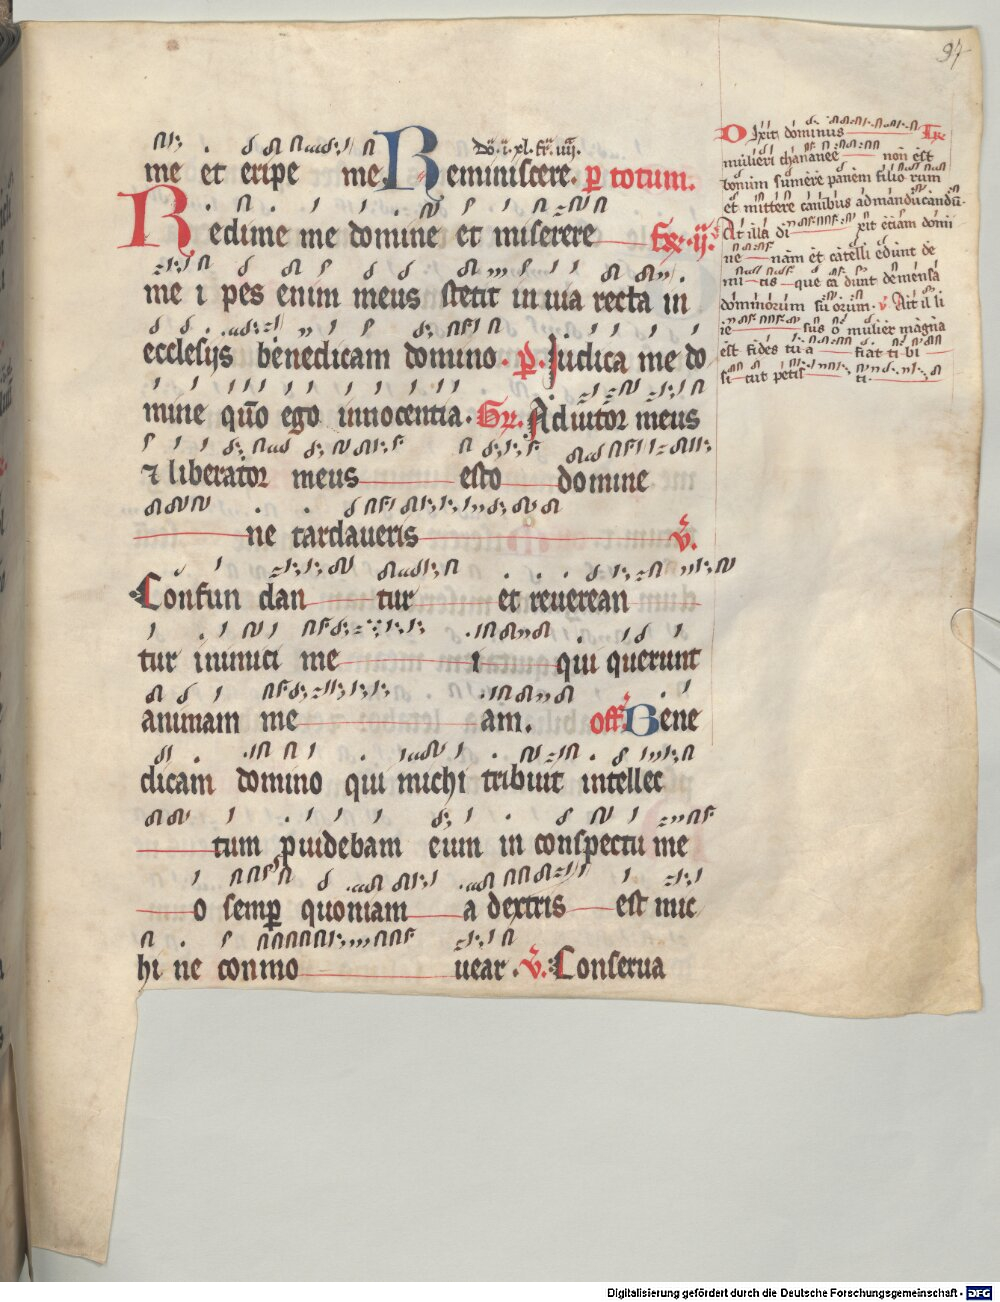 97
me et eripe me. Reminiscere. p totum.
Redime me domine et miserere
me i pes enim meus stetit in uia recta in
ecclesijs benedicam domino. p. Judica me do
mine quo ego innocentia. Gr. Adiutor meus
⁊ liberator meus esto domine
ne tardaueris v.
Confun dan tur et reuerean
tur inimici me i qui querunt
animam me am. off. Bene
dicam domino qui michi tribuit intellec
tum puidebam eum in conspectu me
o semp quoniam a dextris est mic
hi ne conmo uear. v. Conserua
Dixit dominus Tr.
mulieri chananee non est
bonum sumere panem filio rum
et mittere canibus ad manducandu.
At illa di xit etiam domi
ne nam et catelli edunt de
mi cis que ca dunt de mensa
dominorum su orum. v. Ait il li
ie sus o mulier magna
est fides tu a fiat ti bi
si cut petis ti.
Digitalisierung gefördert durch die Deutsche Forschungsgemeinschaft - DFG